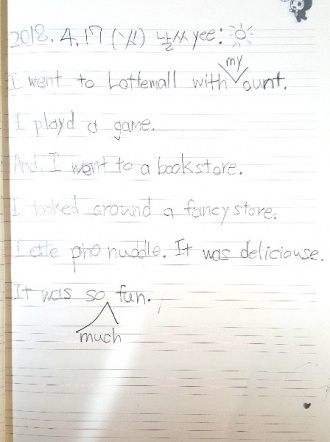 2018. 4. 17 (화) 날씨 yee:
I went to Lottemall with my aunt.
I playd a game.
And. I went to a bookstore.
I looked around a fancy store.
I ate pho nuddle. It was deliciouse.
It was so much fun.